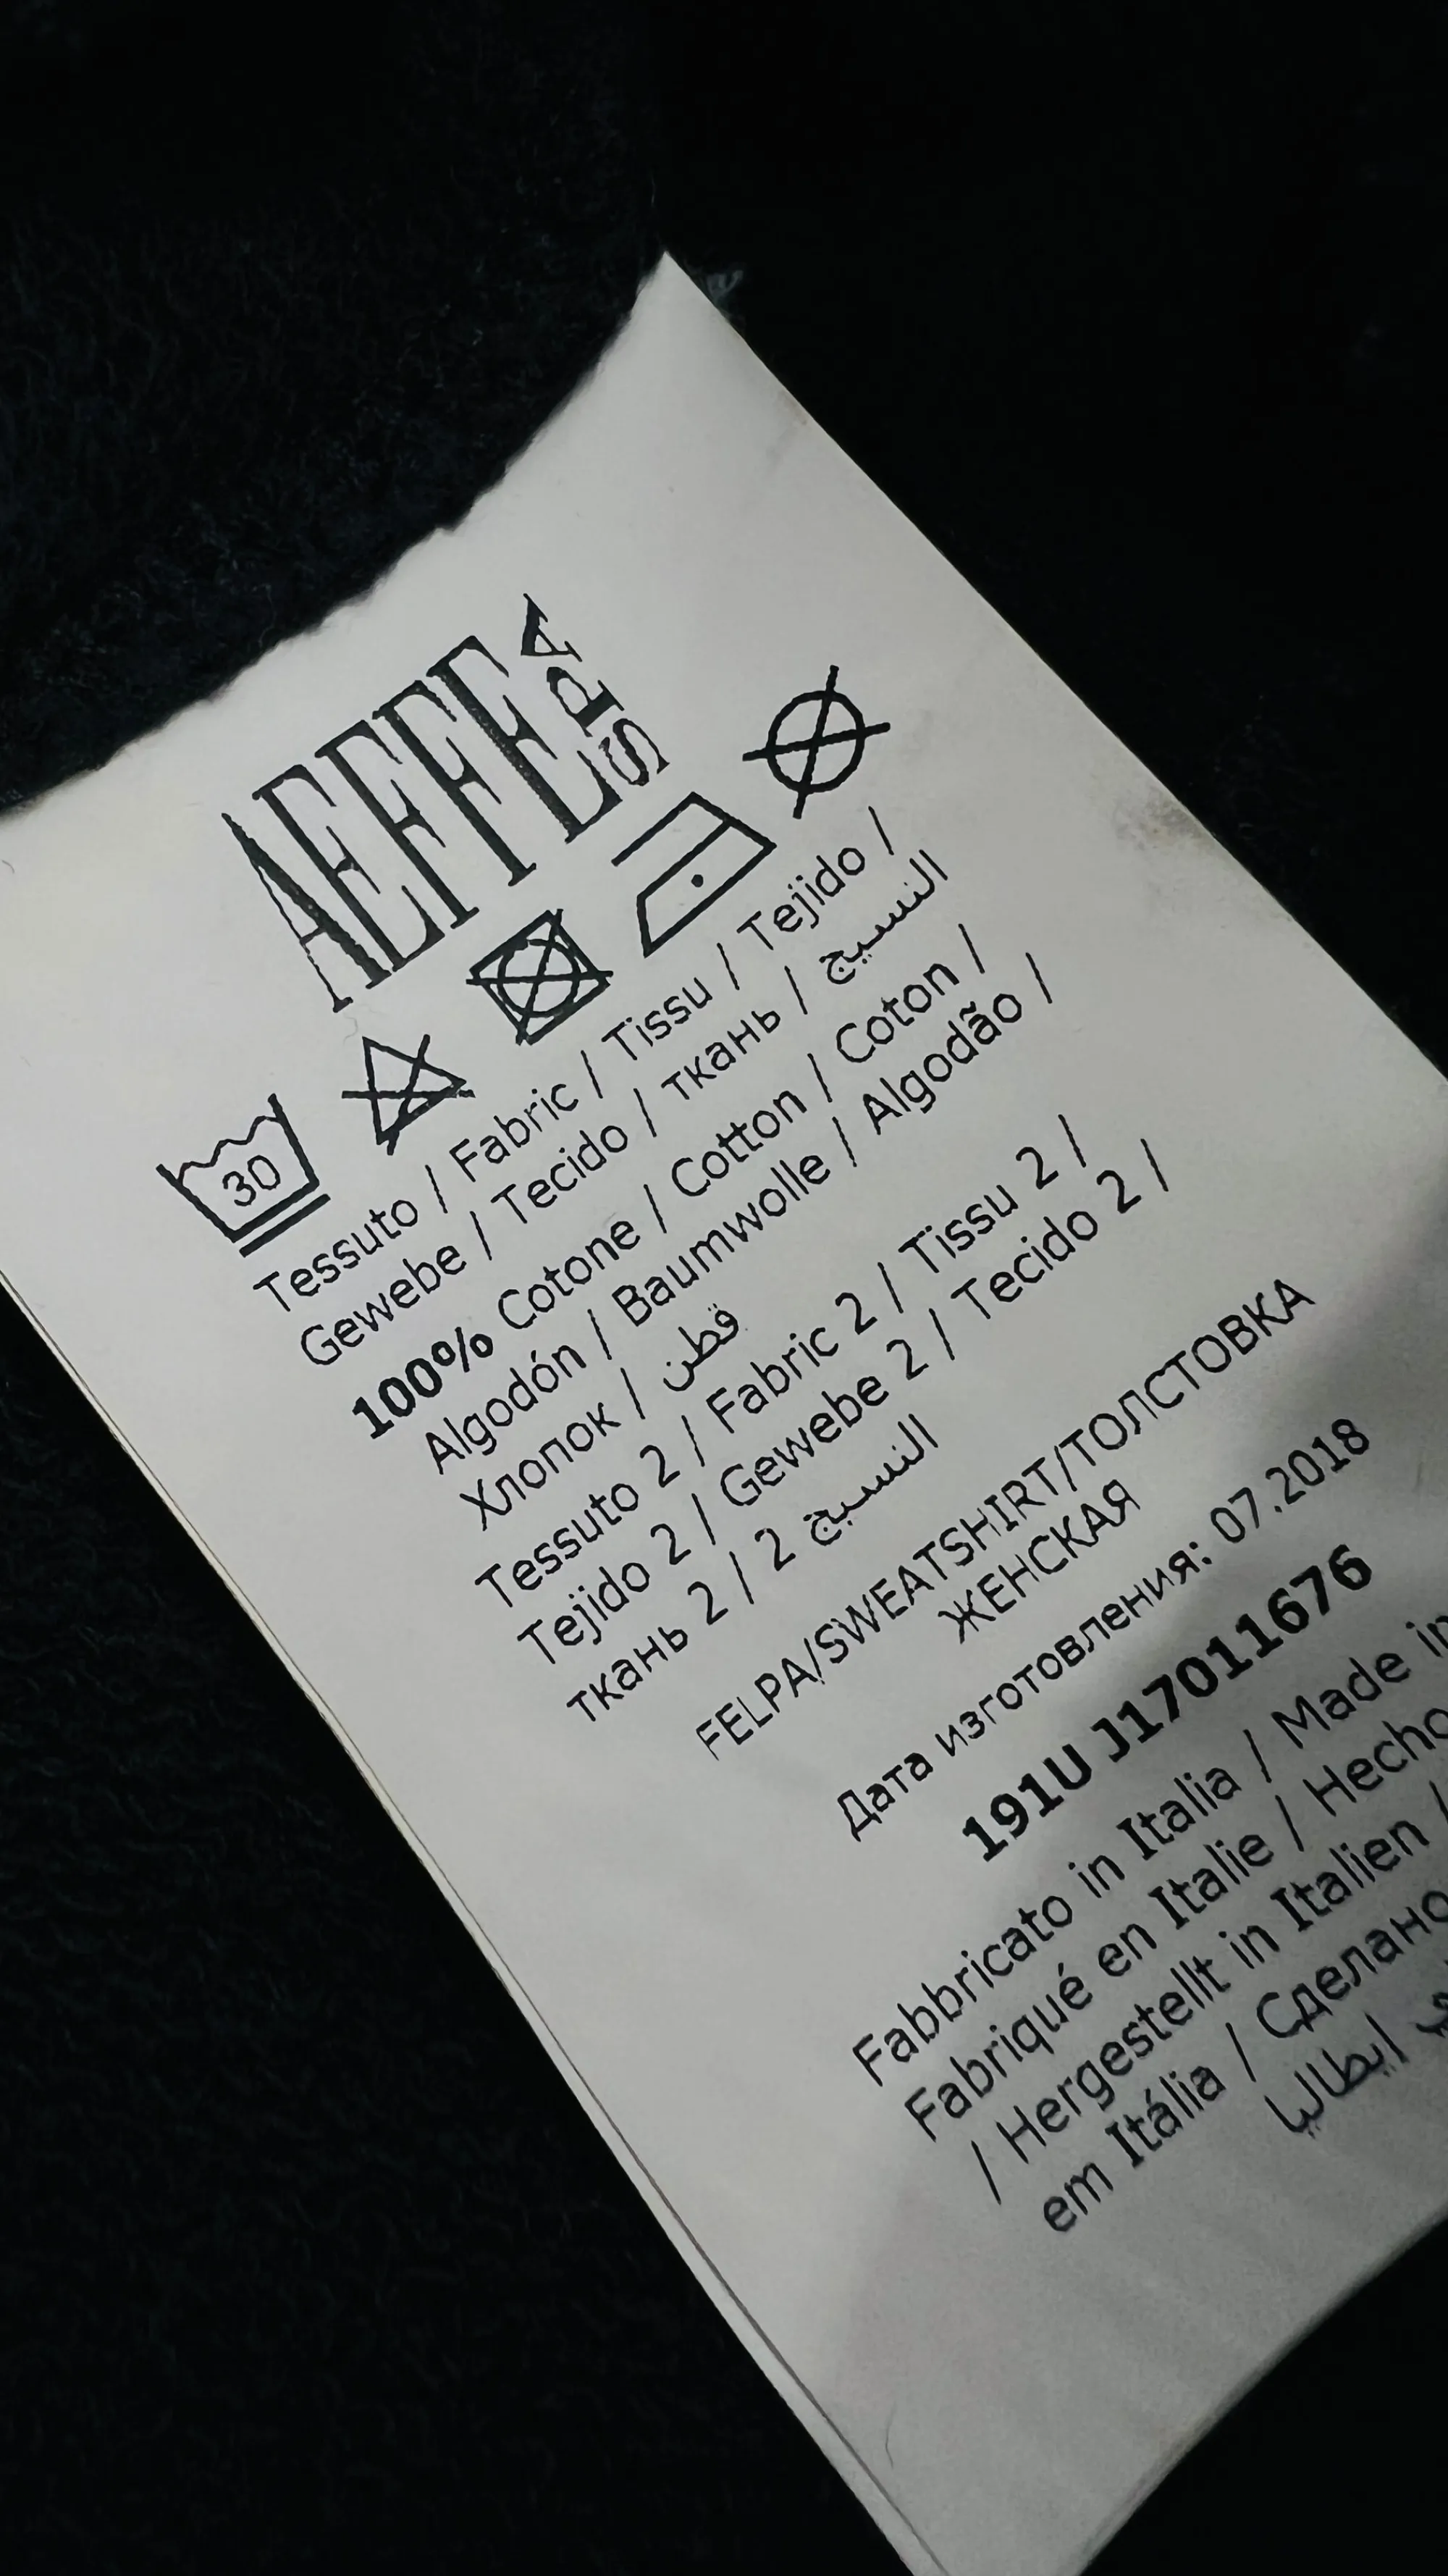 AEFFE SPA
30
Tessuto / Fabric / Tissu / Tejido /
Gewebe / Tecido / ткань / النسيج
100% Cotone / Cotton / Coton /
Algodón / Baumwolle / Algodão /
Хлопок / قطن
Tessuto 2 / Fabric 2 / Tissu 2 /
Tejido 2 / Gewebe 2 / Tecido 2 /
ткань 2 / 2 النسيج
FELPA/SWEATSHIRT/ТОЛСТОВКА
ЖЕНСКАЯ
Дата изготовления: 07.2018
191U J17011676
Fabbricato in Italia / Made in
Fabriqué en Italie / Hecho
/ Hergestellt in Italien /
em Itália / Сделано
ايطاليا